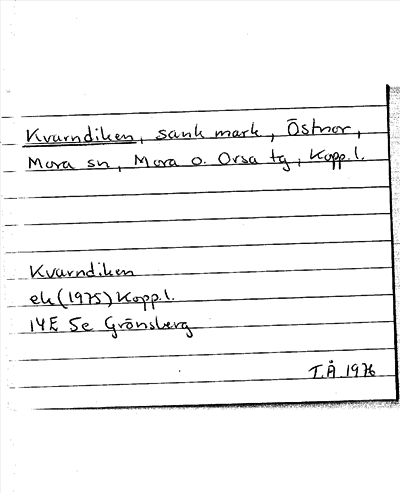 Kvarndiken, sank mark, Östnor,
Mora sn, Mora o. Orsa tg, Kopp.l.
Kvarndiken
ek (1975) Kopp.l.
14E 5e Grönsberg
T.Å 1976